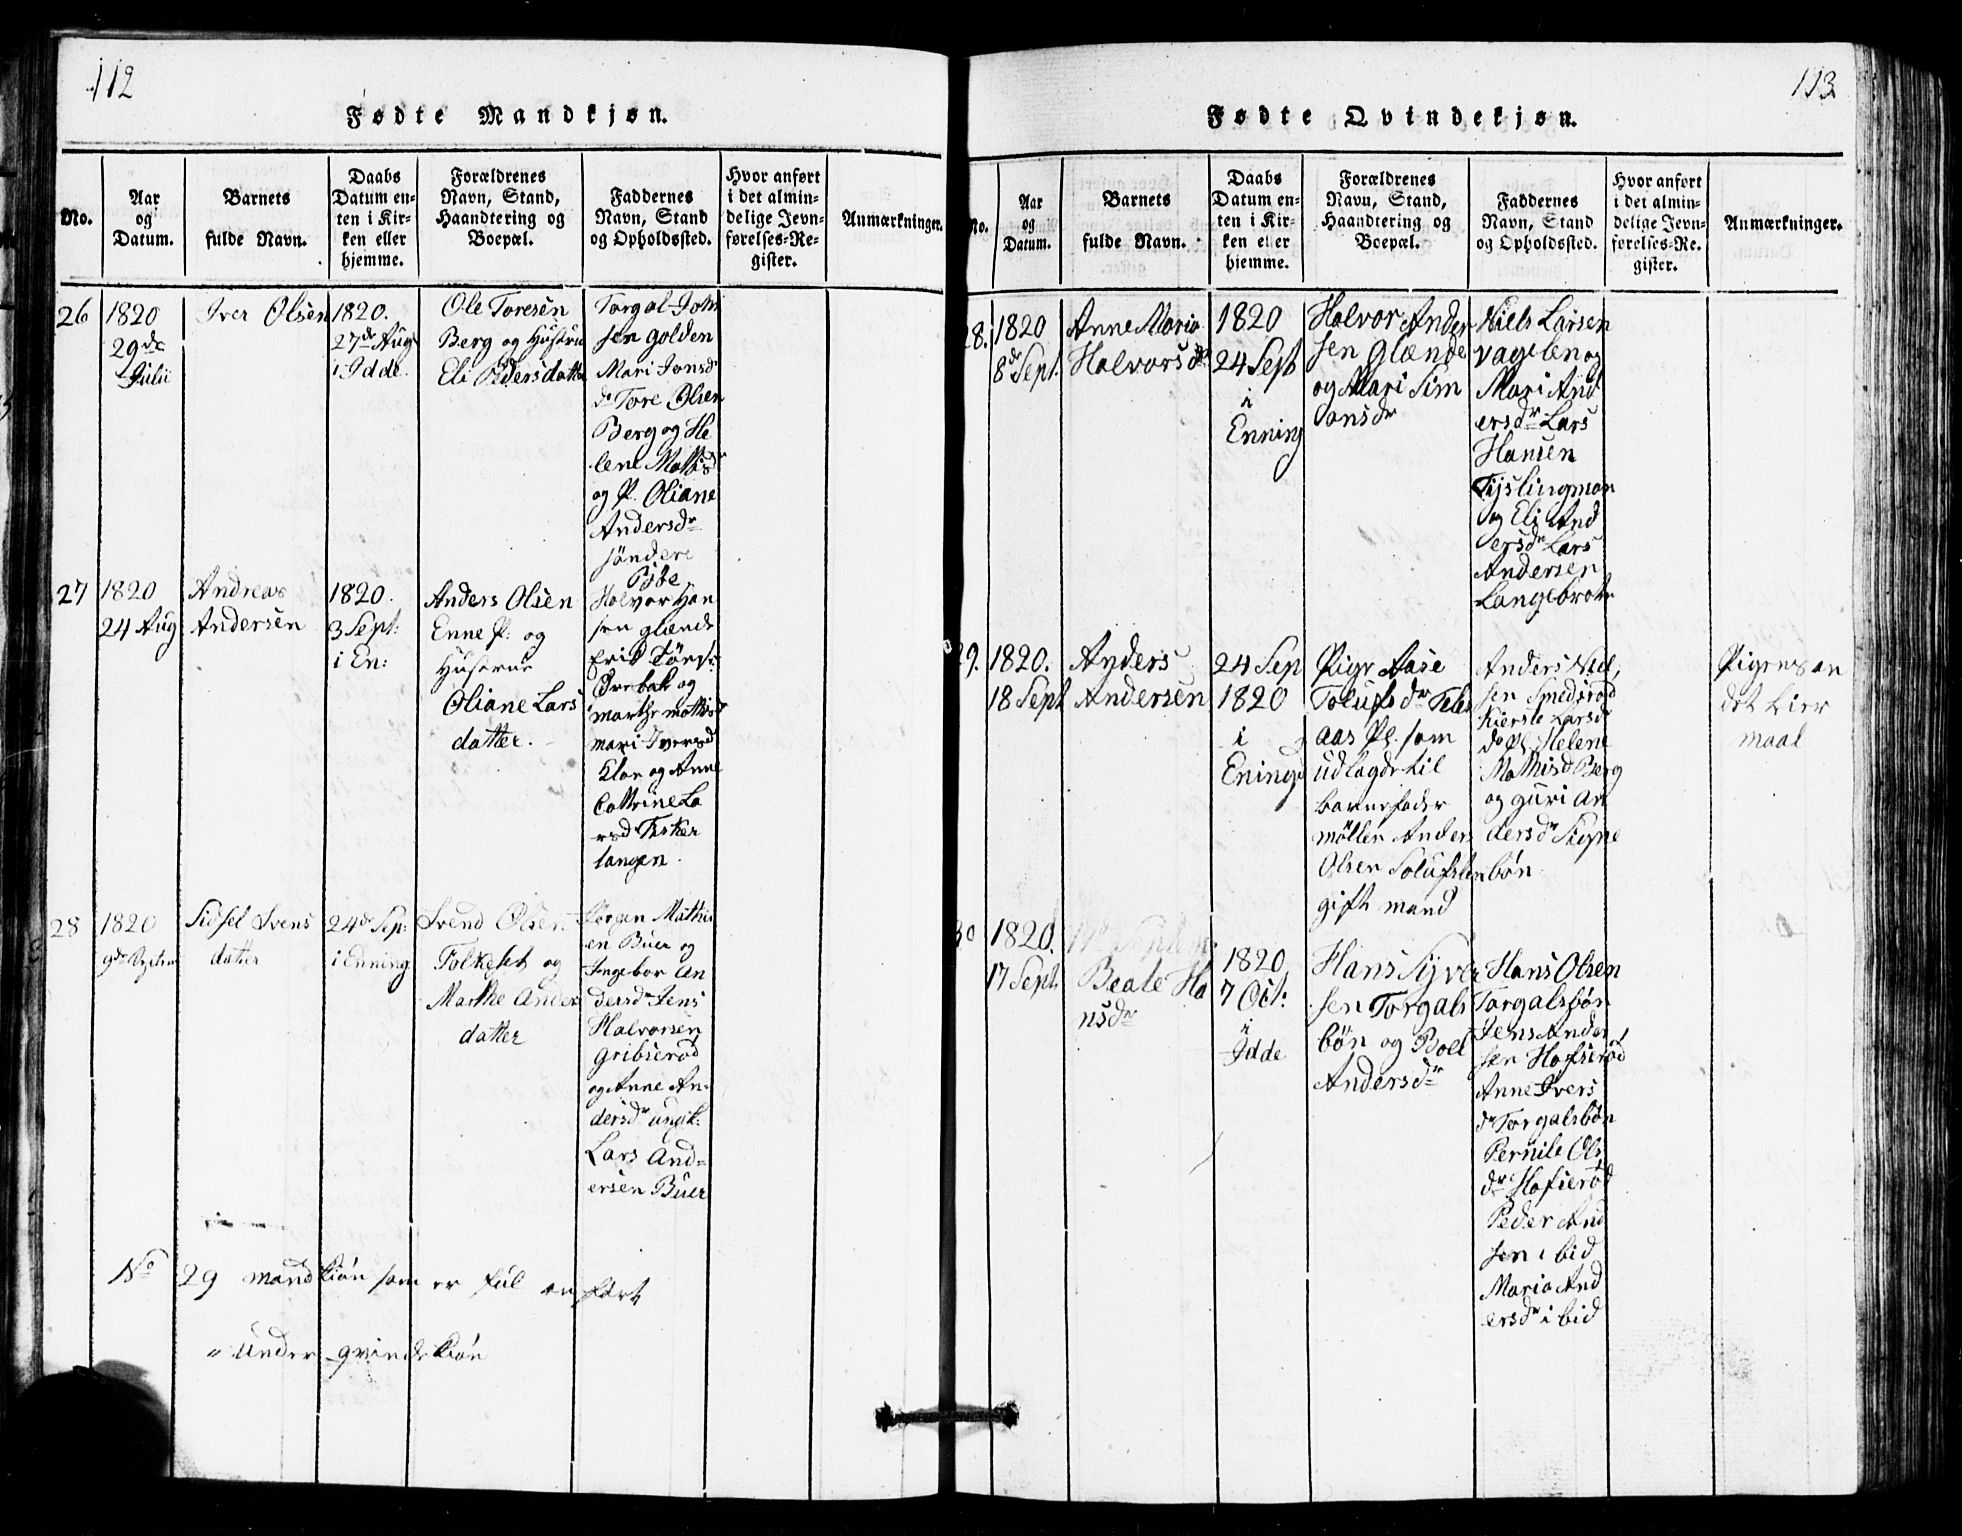 112
Fødte Mandkjøn.
No.
Aar
og
Datum.
Barnets
fulde Navn.
Daabs
Datum en-
ten i Kir-
ken eller
hjemme.
Forældrenes
Navn, Stand,
Haandtering og
Boepæl.
Faddernes
Navn, Stand
og Opholdssted.
Hvor anført
i det almin-
delige Jevn-
førelses-Re-
gister.
Anmærkninger.
26
1820
29de
Julii
Iver Olsen
1820.
27de Aug
i Idde
Ole Toresen
Berg og Hustru
Eli Pedersdatter
Torgal John
sen golden
Mari Jonsd
do Tore Olsen
Berg og He
lene Mathisd
og P. Oliane
Andersdr
söndere
27
1820
24 Aug
Andreas
Andersen
1820.
3 Sept:
i En:
Anders Olsen
Enne P: og
Husstrue
Oliane Lars
datter.
Halvor Han
sen glænde
og
marthe mathisd
mari Iversd
Klar og Anne
Cathrine La
rsd
langen.
28
1820
Sidsel Svens
datter
24de Sep:
i Enning
Svend Olsen
og
Marthe Anders
datter
Jörgen Mathis
en Buer og
Ingebor An
dersdr Jens
Halvorsen
gribserød
og Anne An-
dersdr ungk:
Lars And-
ersen Buer
No 29 mandkiön som er ful anført
" under qvindekiön
113
Fødte Qvindekjøn.
No.
Aar
og
Datum.
Barnets
fulde Navn.
Daabs
Datum en-
ten i Kir-
ken eller
hjemme.
Forældrenes
Navn, Stand,
Haandtering og
Boepæl.
Faddernes
Navn, Stand
og Opholdssted.
Hvor anført
i det almin-
delige Jevn-
førelses-Re-
gister.
Anmærkninger.
28.
1820
8de Sept.
Anne Maria
Halvorsdr
1820
24 Sept
i
Enning
Halvor Ander
sen Glænde
og Mari Sim
onsdr
Niels Larsen
vagelen og
Mari And
ersdr Lars
Hansen
Tislingmon
og Eli And
ersdr Lars
Andersen
Langebrote
29.
1820.
18 Sept
Anders
Andersen
24 Sep
1820
i
Ening
Pige Aase
Tolufsdr
aas Pl. som
udlagde til
barnefader
möller Anders
Olsen
gift mand
Anders Niel
sen Smedsrød
Kierste Larsdr
do Pl. Helene
Mathisd Berg
og guri An
dersdr Signe
bön
Pigens an
det Leier
maal
30
1820.
17 Sept.
Beate Ha
nsdr
1820
7 Oct:
i
Idde
Hans Syver
sen Torgals
bön og Boel
Andersdr
Hans Olsen
Torgalsbön
Jens Ander
sen Hofserød
Anne Ivers
dr Torgalsbön
Pernile Ols
dr Hofserød
Peder And
sen i bid
Maria And
ersdr i bid